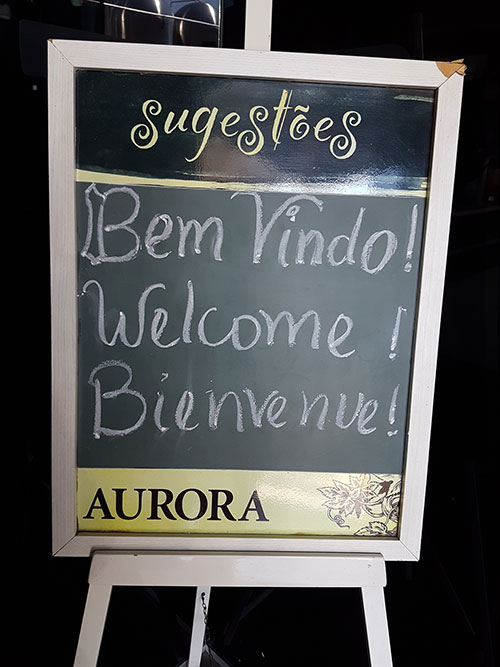 sugestões
Bem Vindo!
Welcome !
Bienvenue!
AURORA